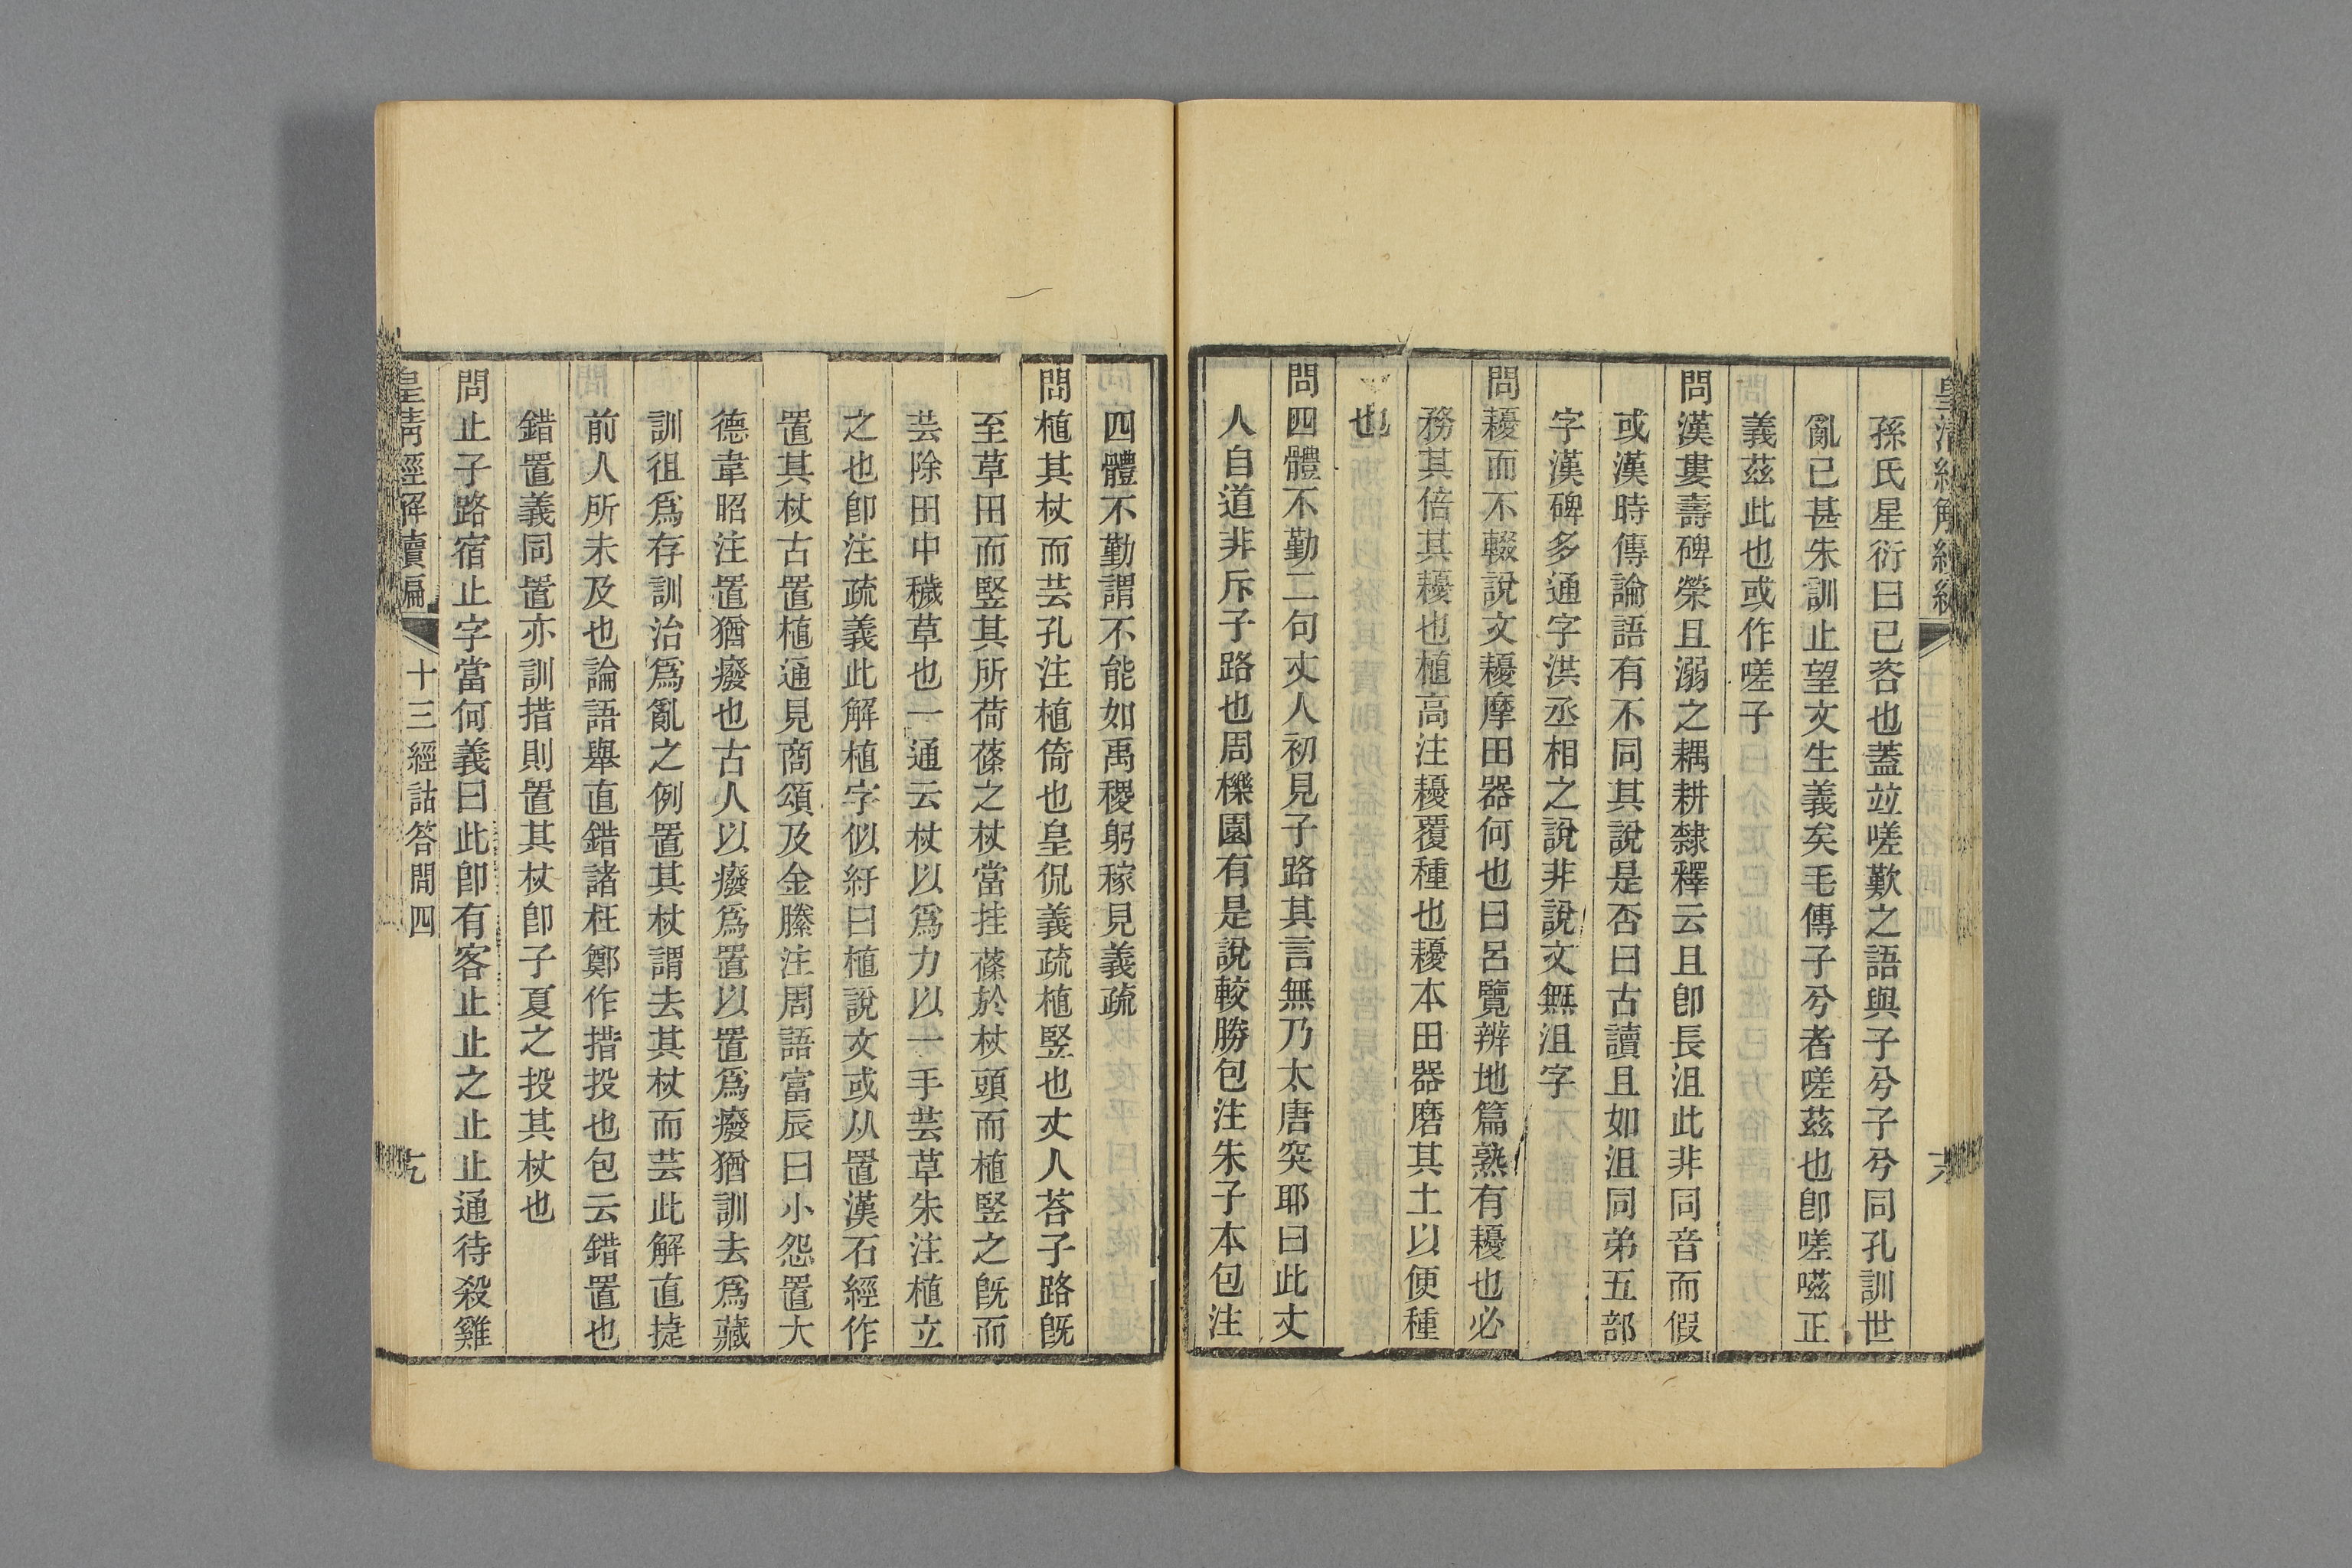 孫氏星衍曰已咨也蓋竝嗟歎之語與子兮子兮同孔訓世
亂已甚朱訓止望文生義矣毛傳子兮者嗟茲也卽嗟嗞正
義茲此也或作嗟子
問漢婁壽碑榮且溺之耦耕隸釋云且卽長沮此非同音而假
或漢時傳論語有不同其說是否曰古讀且如沮同弟五部
字漢碑多通字洪丞相之說非說文無沮字
問耰而不輟說文耰摩田器何也曰呂覽辨地篇熟有耰也必
務其倍其耰也植高注耰覆種也耰本田器磨其土以便種
也
問四體不勤二句丈人初見子路其言無乃太唐突耶曰此丈
人自道非斥子路也周櫟園有是說較勝包注朱子本包注
四體不勤謂不能如禹稷躬稼見義疏
問植其杖而芸孔注植倚也皇侃義疏植竪也丈人荅子路旣
至草田而竪其所荷蓧之杖當挂蓧於杖頭而植竪之旣而
芸除田中穢草也一通云杖以爲力以一手芸草朱注植立
之也卽注疏義此解植字似紆曰植說文或从置漢石經作
置其杖古置植通見商頌及金縢注周語富辰曰小怨置大
德韋昭注置猶廢也古人以廢爲置以置爲廢猶訓去爲藏
訓徂爲存訓治爲亂之例置其杖謂去其杖而芸此解直捷
前人所未及也論語舉直錯諸枉鄭作措投也包云錯置也
錯置義同置亦訓措則置其杖卽子夏之投其杖也
問止子路宿止字當何義曰此卽有客止止之止止通待殺雞
皇淸經解續編
十三經詁答問四